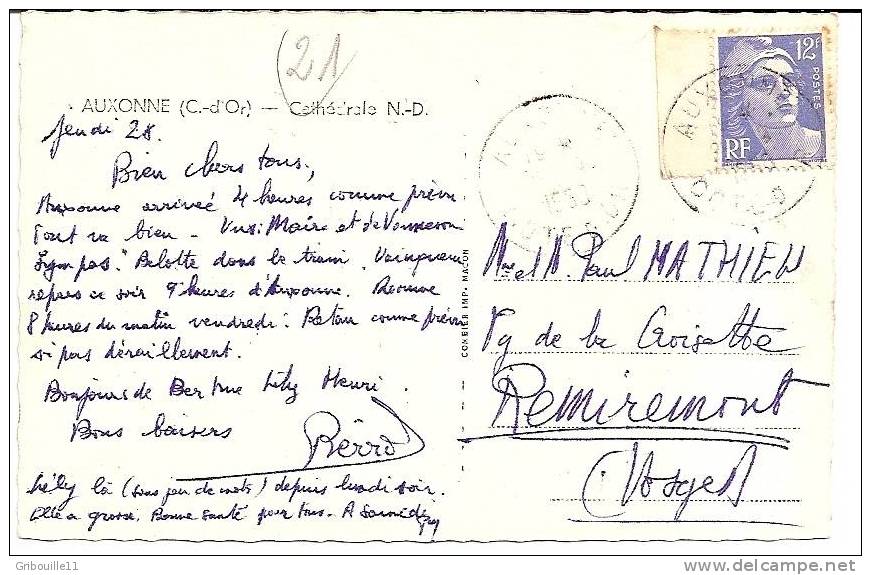 (21)
AUXONNE (C.-d'Or) — Cathédrale N.-D.
Jeudi 28.
Bien chers tous,
Auxonne arrivée 4 heures comme prévu
Tout va bien - Maire et de
Sympas. Belotte dans le train. Vainqueurs
repars ce soir 9 heures d'Auxonne.
8 heures du matin vendredi. Retour comme prévu
si pas déraillement.
Bonjours de Berthe Lily Henri.
Bons baisers
Pierrot
Lily là (sans jeu de mots) depuis lundi soir.
Elle a grossi. Bonne santé pour tous. A Samedi
COMBIER IMP. MACON
12F
POSTES
RF
AUXONNE
COTE-D'OR
Mme et M. Paul MATHIEU
Fg de la Croisette
Remiremont
(Vosges)
© Gribouille11
www.delcampe.net